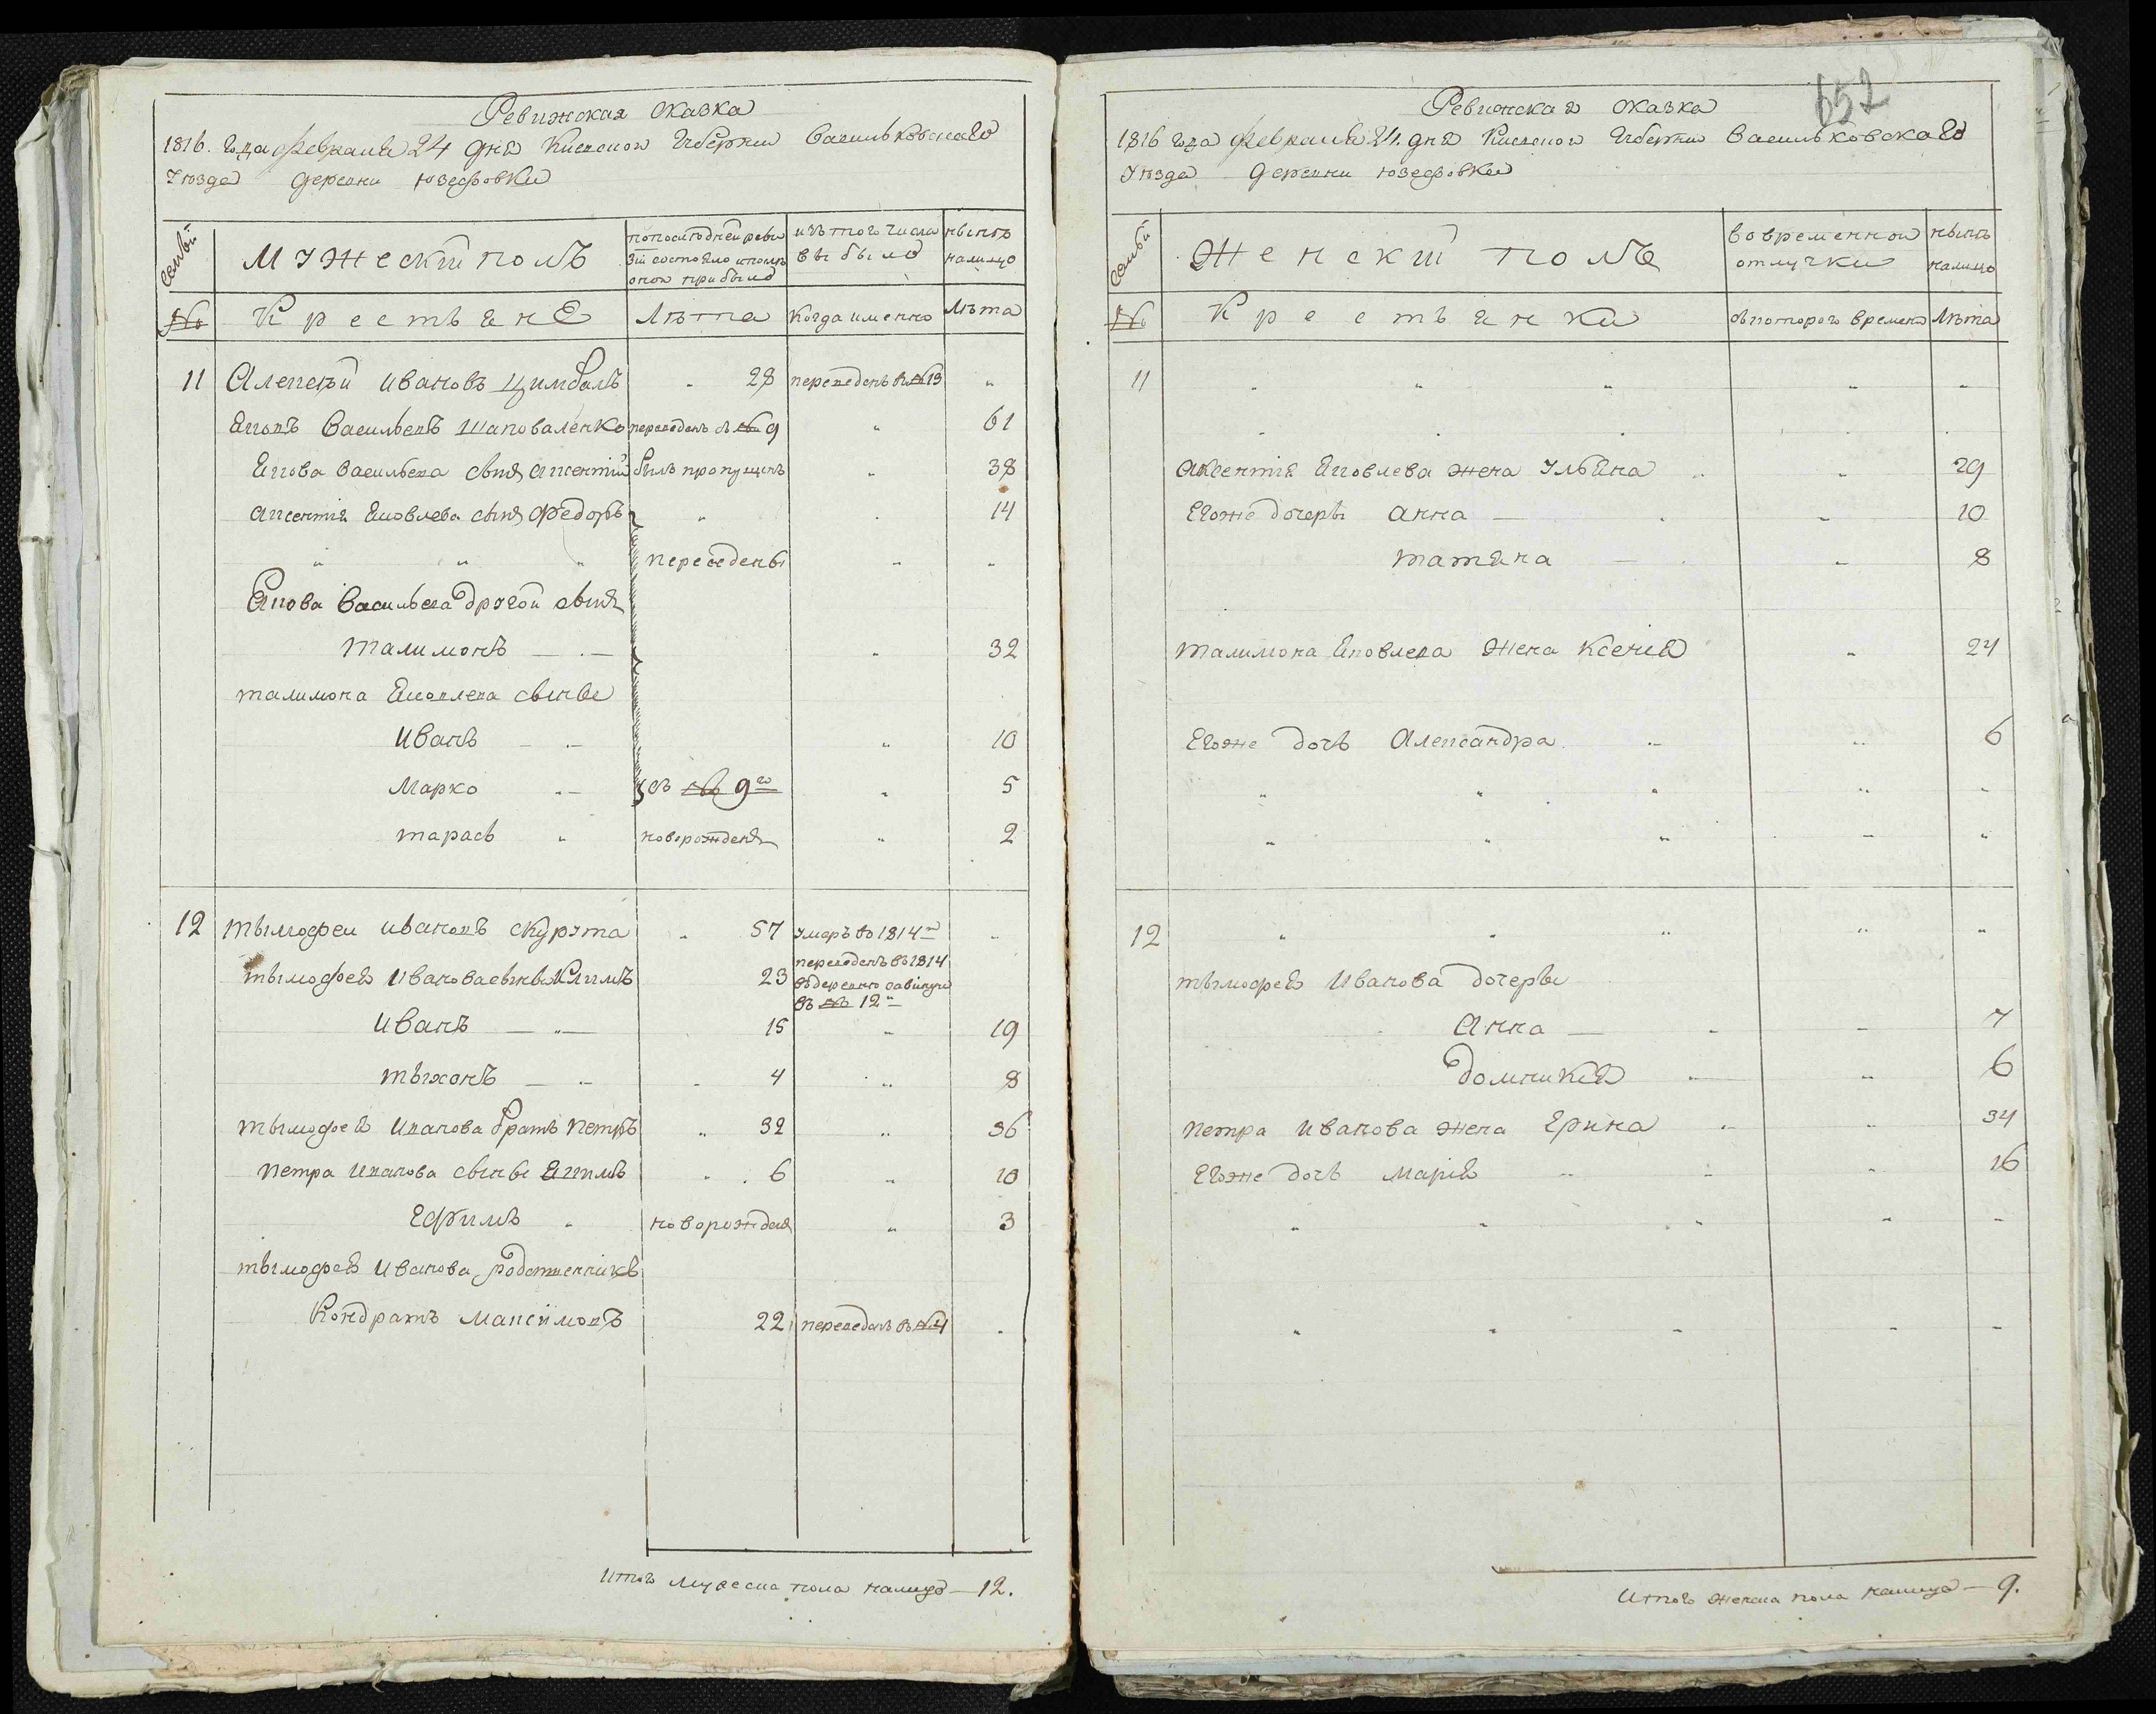 Ревижская сказка
1816. года февраля 24 дня Киевской Губернии Васильковскаго
Уѣзда деревни Юзефовки
семьи
Мужескїй полъ
попослѣдней реви
зїи состояло ипослѣ
оной прибыло
изъ того числа
выбыло
нынѣ
налицо
№
Крестьяне
Лѣта
Когда именно
Лѣта
11 Алексѣй Ивановъ Цимбалъ 28 переведенъ в № 13 "
Яковъ Васильевъ Шаповаленко переведенъ съ № 9 " 61
Якова Васильева сынъ Аксентїй былъ пропущенъ " 38
Аксентїя Яковлева сынъ Федоръ " " 14
" " " переведены " "
Якова Васильева другой сынъ
Талимонъ " 32
Талимона Яковлева сынъве
Иванъ " 10
Марко съ № 9го " 5
Тарасъ " новорожденъ " 2
12 Тымофей Ивановъ Скурута " 57 умеръ во 1814м "
Тымофея Иванова сынъве Климъ 23 переведенъ въ 1814
въ деревню
въ № 12"
Иванъ 15 " 19
Тыхонъ 4 " 8
Тымофея Иванова братъ Петръ " 32 " 36
Петра Иванова сынъве Якимъ " 6 " 10
Ефимъ " новорожден " 3
Тымофея Иванова родственникъ
Кондратъ Максимовъ 22 переведенъ въ № 4 "
Итого мужеска пола налицо — 12.
652
Ревижская сказка
1816 года февраля 24. дня Киевской Губернии Васильковскаго
Уѣзда деревни Юзефовки
семьи
Женскїй полъ
во временной
отлучки
нынѣ
налицо
№
Крестьянки
съ котораго времени
Лѣта
11 " " " " "
" " " " "
Аксентїя Яковлева жена Ульяна " 29
Егоже дочеры Анна — " 10
Татяна — " 8
Талимона Яковлева жена Ксенїя " 24
Егоже дочь Александра " " 6
" " " " "
" " " " "
12 " " " " "
Тымофея Иванова дочеры
Анна — " 7
Домникїя " " 6
Петра Иванова жена Ерина " " 34
Егоже дочь Марїя " " 16
" " " " "
" " " " "
Итого женска пола налицо — 9.